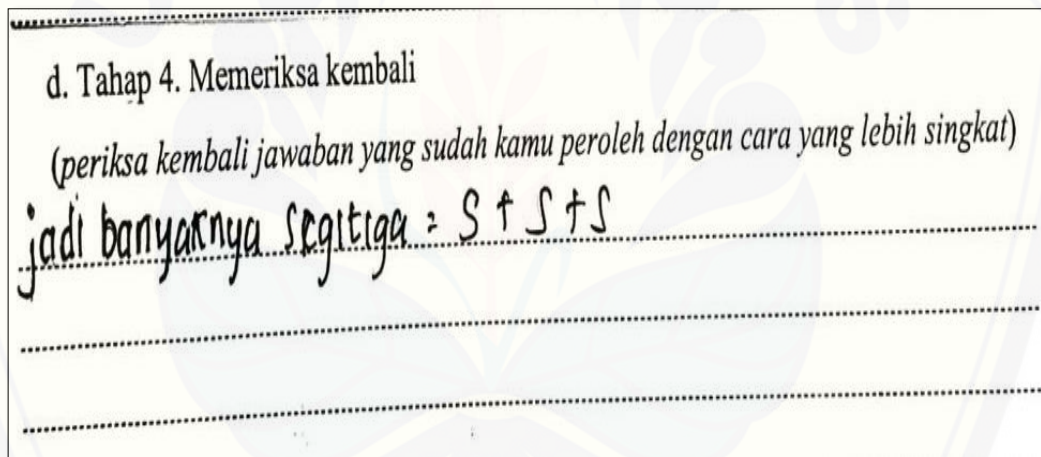 d. Tahap 4. Memeriksa kembali
(periksa kembali jawaban yang sudah kamu peroleh dengan cara yang lebih singkat)
jadi banyaknya segitiga = S + S + S